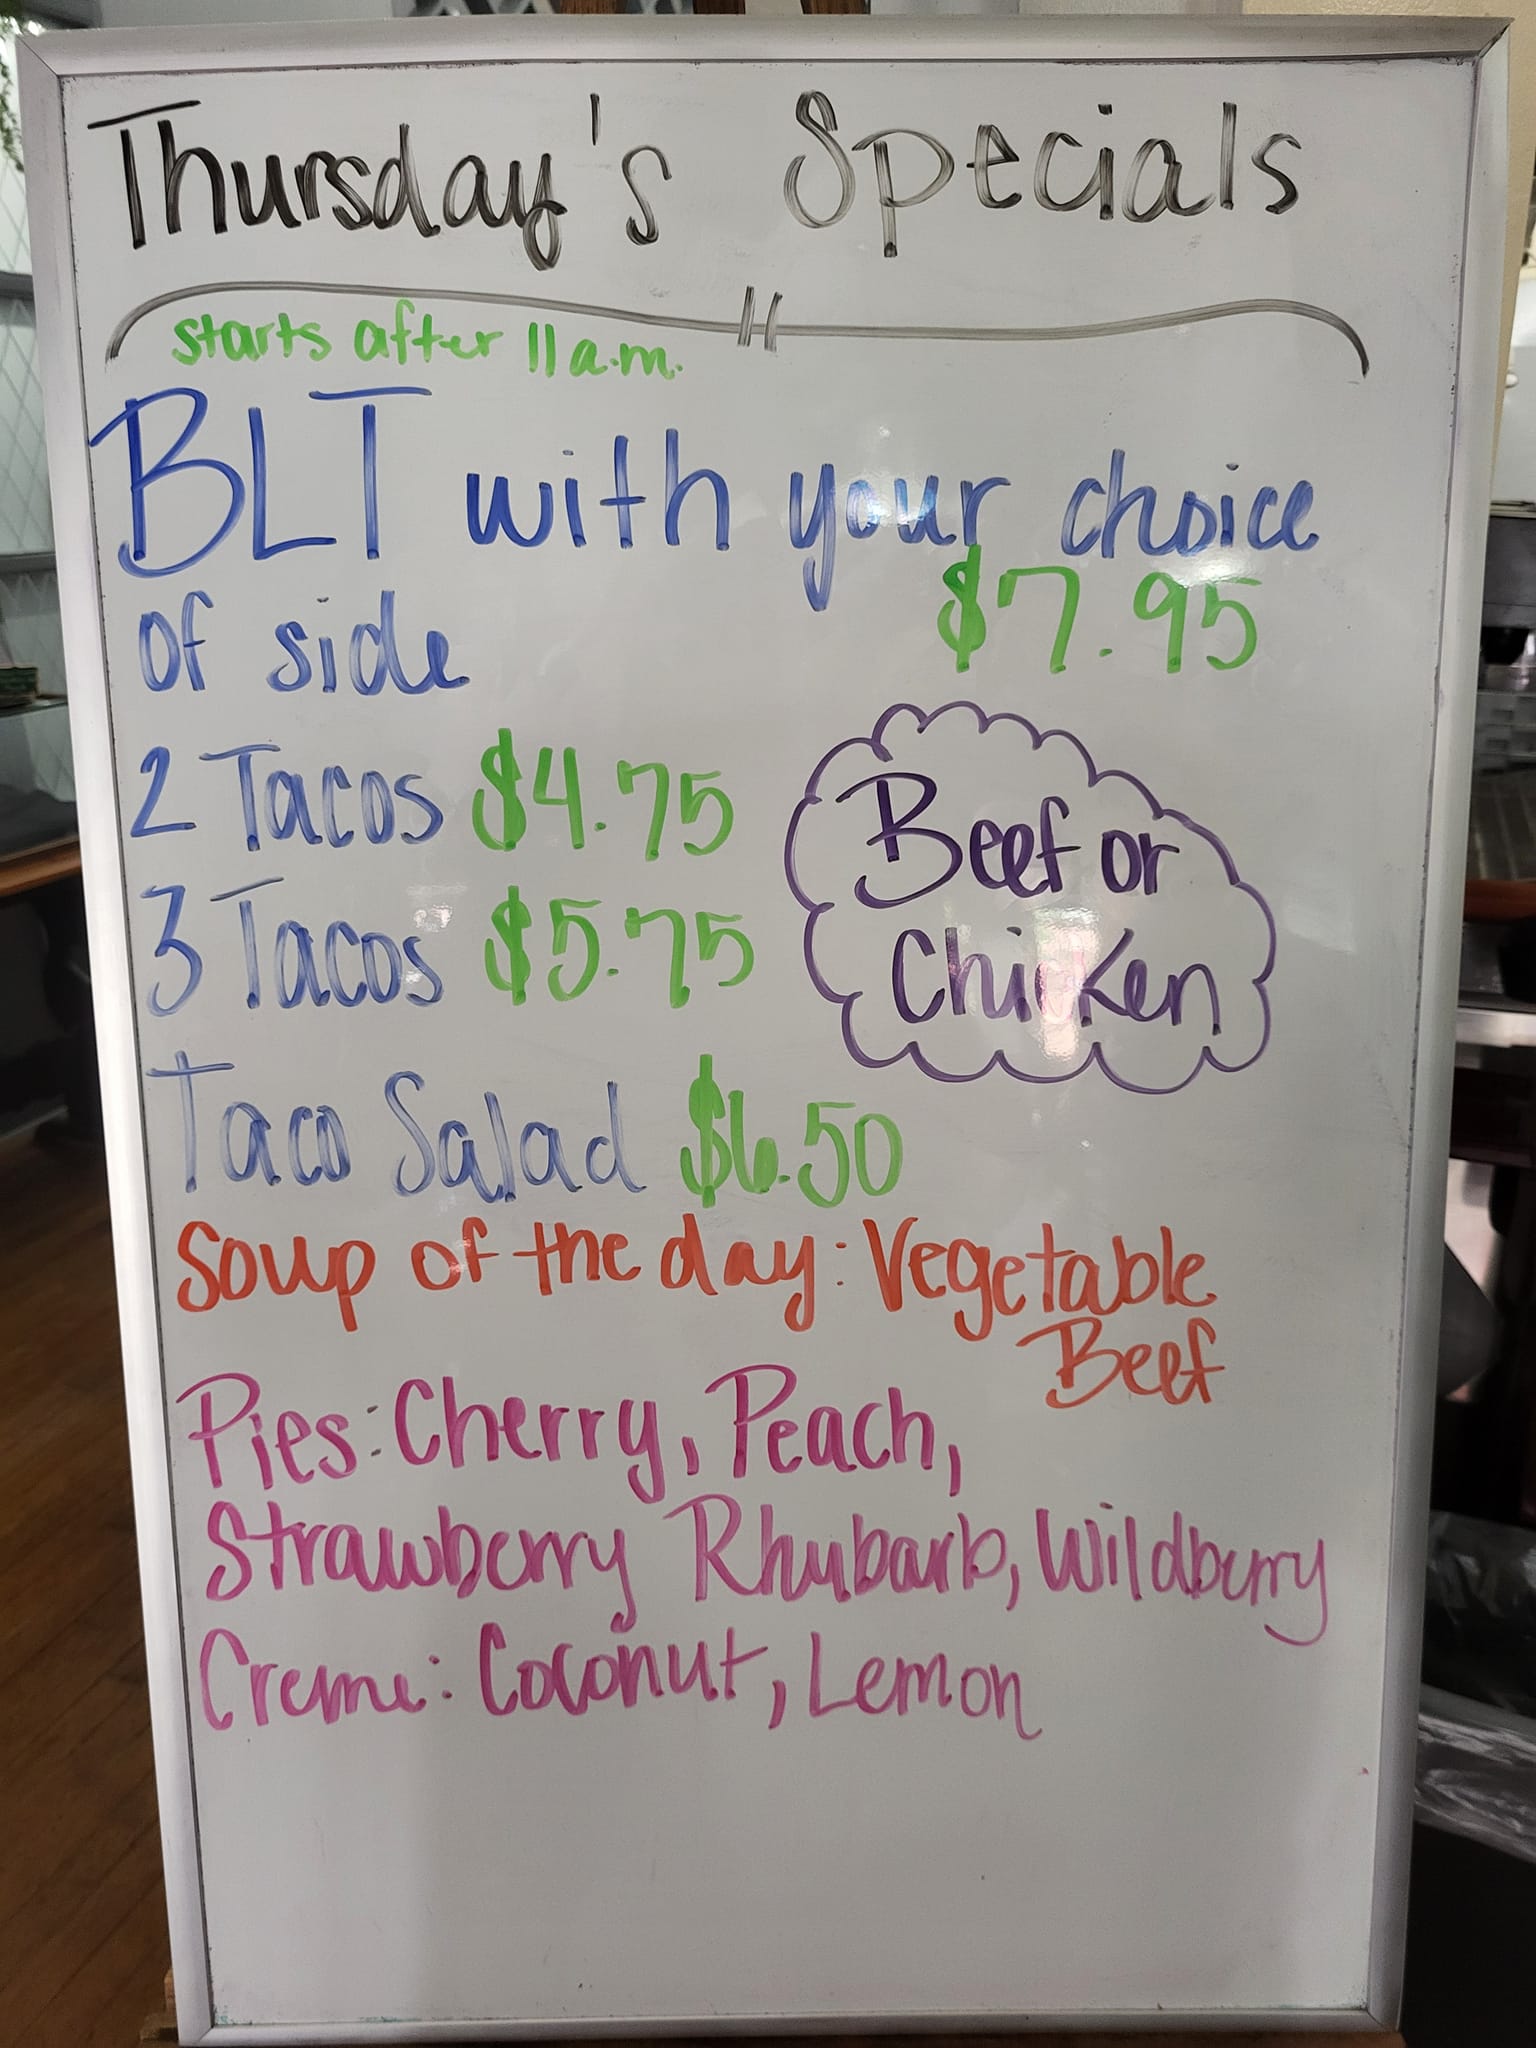 Thursday's Specials
starts after 11 a.m.
BLT with your choice
of side $7.95
2 Tacos $4.75
3 Tacos $5.75
Beef or
Chicken
Taco Salad $6.50
Soup of the day: Vegetable
Beef
Pies: Cherry, Peach,
Strawberry Rhubarb, Wildberry
Creme: Coconut, Lemon